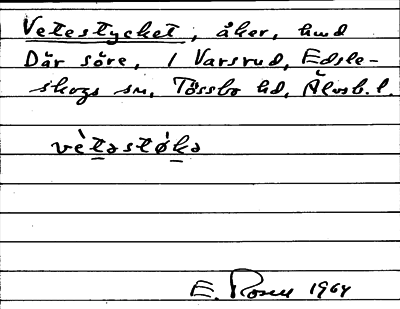 Vetestycket, åker, hmd
Där söre, 1 Varsrud, Edsle-
skogs sn, Tössbo hd, Älvsb. l.
vètəstø̀kə
E. Rosell 1964